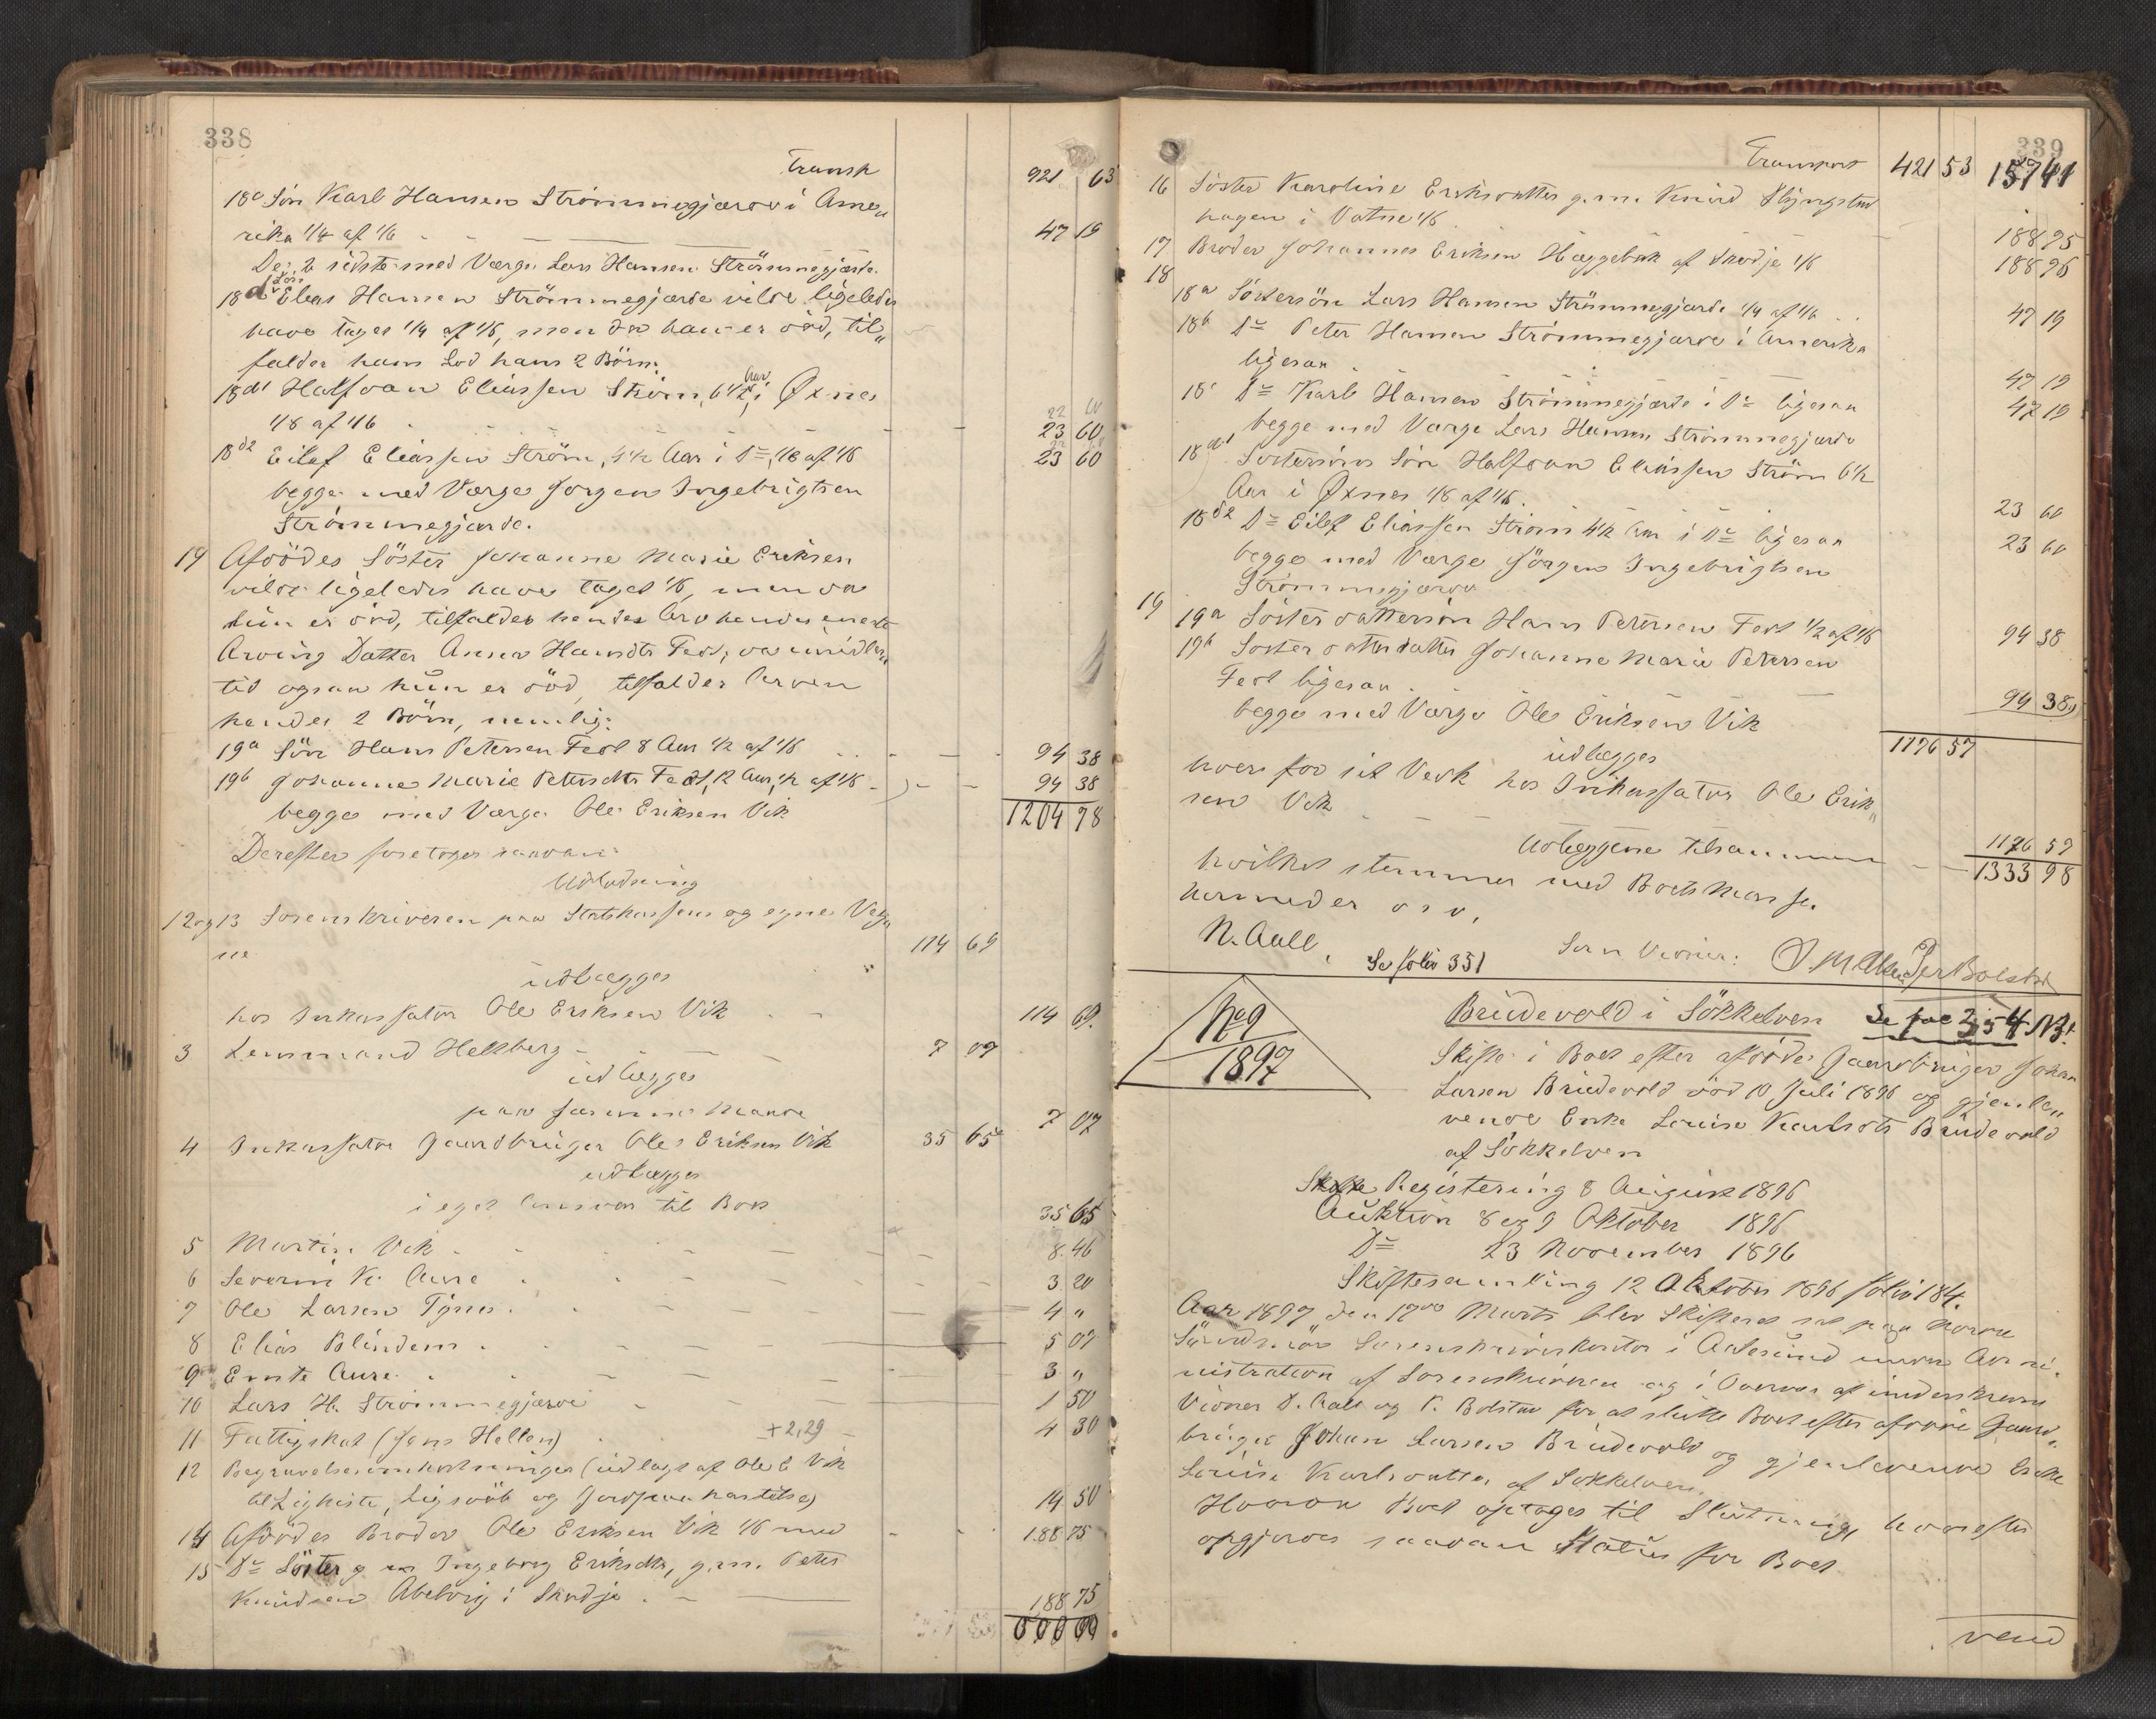 338
Transp 921 63
18c Søn Karl Hansen Strømmegjærde i Ame„
rika 1/4 af 1/6 47 19
De 2 sidste med Værge Lars Hansen Strömmegjærde.
18d Søn Elias Hansen Strömmegjærde vilde ligeledes
have taget 1/4 af 1/6, men da han er död, til„
falder hans Lod hans 2 Börn:
18d1 Halfdan Eliassen Ström, 6 1/2 Aar i Øxnes
1/8 af 1/6 23 60
18d2 Eilef Eliassen Ström, 4 1/2 Aar i Do, 1/8 af 1/6 23 60
begge med Værge Jörgen Ingebrigtsen
Strömmegjærde.
19 Afdödes Söster Johanne Marie Eriksen
vilde ligeledes have taget 1/6, men da
hun er död, tilfalder hendes Arv hendes eneste
Arving Datter Anna Hansdtr Fedt, da imidler„
tid ogsaa hun er död, tilfalder Arven
hendes 2 Börn, nemlig:
19a Sön Hans Petersen Fedt 8 Aar 1/2 af 1/6 94 38
19b Johanne Marie Petersdtr Fedt, 12 Aar, 1/2 af 1/6 94 38
begge med Værge Ole Eriksen Vik 1204 78
Derefter foretoges saadan
Udlodning
12 og 13 Sorenskriveren paa Statskassens og egne Veg„
ne 114 69
udlægges
hos Inkassator Ole Eriksen Vik 114 69
3 Lensmand Hellberg 7 07
udlægges
paa samme Maade 7 07
4 Inkassator Gaardbruger Ole Eriksen Vik 35 65
udlægges
i eget Ansvar til Boet 35 65
5 Martin Vik 8 46
6 Severin K. Aure 3 20
7 Ole Larsen Tynes 4 „
8 Elias Blindem 5 07
9 Ernte Aure 3 „
10 Lars H. Strömmegjærde 1 50
11 Fattigskat (Jens Hellen) + 2,29 4 30
12 Begravelsesomkostninger (udlagt af Ole E Vik
til Ligkiste, Ligsvöb og Jordpaakastelse) 14 50
14 Afdödes Broder Ole Eriksen Vik 1/6 med 188 75
15 Do Söster Ingeborg Eriksdtr, g. m. Peter
Knudsen Abelvig i Skodje 188 75
339
Transport 421 53 157 41
16 Söster Karoline Eriksdatter g. m. Knud Slyngstad
hagen i Vatne 1/6 188 75
17 Broder Johannes Eriksen Hæggebak af Skodje 1/6 188 76
18
18a Söstersön Lars Hansen Strömmegjærde 1/4 af 1/6 47 19
18b Do Peter Hansen Strömmegjærde i Amerika
ligesaa 47 19
18c Do Karl Hansen Strömmegjærde i Do ligesaa 47 19
begge med Værge Lars Hansen Strömmegjærde
18d1 Söstersöns Sön Halfdan Eliassen Ström 6 1/2
Aar i Øxnes 1/8 af 1/6. 23 60
18d2 Do Eilef Eliassen Ström 4 1/2 Aar i Do ligesaa 23 60
begge med Værge Jörgen Ingebrigtsen
Strömmegjærde
19
19a Sösterdattersön Hans Petersen Fedt 1/2 af 1/6 94 38
19b Sösterdatterdatter Johanne Marie Petersen
Fedt ligesaa 94 38
begge med Værge Ole Eriksen Vik
1176 57
udlægges
hver for sit Vedk hos Inkassator Ole Erik„
sen Vik 1176 57
Udlæggene tilsammen 1333 98
hvilket stemmer med Boets Masse.
hermeder osv.
N. Aall,
Se folio 351
Som Vidner:
No 9
1897
Brudevold i Sökkelven Se fol 354 NB!
Skifte i Boet efter afdöde Gaardbruger Johan
Larsen Brudevold död 10 Juli 1896 og gjenle„
vende Enke Louise Karlsdtr Brudevold
af Sökkelven
Registering 8 August 1896
Auktion 8 og 9 Oktober 1896
Do 23 November 1896
Skiftesamling 12 Oktober 1896 folio 184.
Aar 1897 den 17de Marts blev Skifteret sat paa Nordre
Söndmörs Sorenskriverkontor i Aalesund under Admi„
nistration af Sorenskriveren og i Overvær af underskrevne
Vidner D. Aall og P. Bolstad for at slutte Boet efter afdöde Gaard„
bruger Johan Larsen Brudevold og gjenlevende Enke
Louise Karlsdatter af Sökkelven.
Hvorom Boet optoges til Slutning, hvorefter
opgjordes saadan Status for Boet.
vend